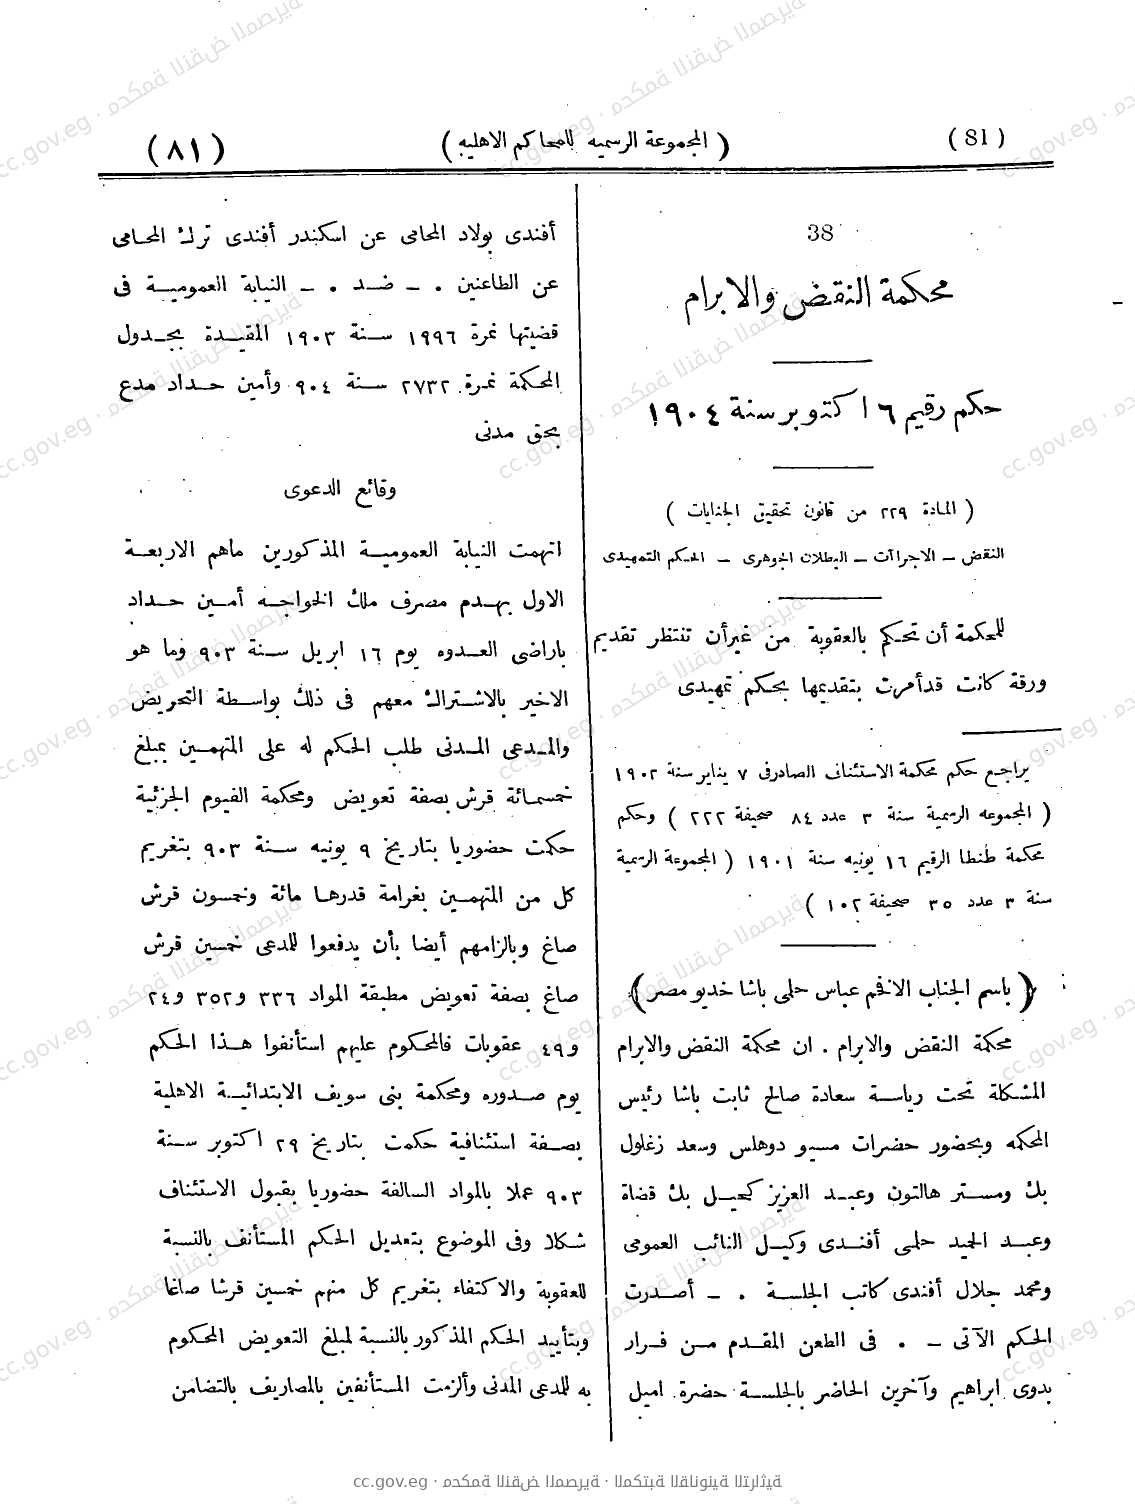 (81)
( المجموعة الرسميه للمحاكم الاهليه )
(٨١)
38
محكمة النقض والابرام
حكم رقيم ٦ اكتوبر سنة ١٩٠٤
( المادة ٢٢٩ من قانون تحقيق الجنايات )
النقض – الاجراآت – البطلان الجوهرى – الحكم التمهيدى
للمحكمة أن تحكم بالعقوبة من غير أن تنتظر تقديم
ورقة كانت قد أمرت بتقديمها بحكم تمهيدى
يراجع حكم محكمة الاستئناف الصادر فى ٧ يناير سنة ١٩٠٢
( المجموعه الرسمية سنة ٣ عدد ٨٤ صحيفة ٢٢٢ ) وحكم
محكمة طنطا الرقيم ١٦ يونيه سنة ١٩٠١ ( المجموعة الرسمية
سنة ٣ عدد ٣٥ صحيفة ١٠٢ )
( باسم الجناب الافخم عباس حلمى باشا خديو مصر )
محكمة النقض والابرام . ان محكمة النقض والابرام
المشكلة تحت رياسة سعادة صالح ثابت باشا رئيس
المحكمه وبحضور حضرات مسيو دوهلس وسعد زغلول
بك ومستر هالتون وعبد العزيز كحيل بك قضاة
وعبد المجيد حلمى أفندى وكيل النائب العمومى
ومحمد جلال أفندى كاتب الجلسة . – أصدرت
الحكم الآتى – . فى الطعن المقدم من قرار
بدوى ابراهيم وآخرين الحاضر بالجلسة حضرة اميل
أفندى بولاد المحامى عن اسكندر أفندى ترك المحامى
عن الطاعنين . – ضد . – النيابة العمومية فى
قضيتها نمرة ١٩٩٦ سنة ١٩٠٣ المقيدة بجدول
المحكمة نمرة ٢٧٣٢ سنة ٩٠٤ وأمين حداد مدع
بحق مدنى
وقائع الدعوى
اتهمت النيابة العمومية المذكورين ماهم الاربعة
الاول بهدم مصرف ملك الخواجه أمين حداد
باراضى العدوه يوم ١٦ ابريل سنة ٩٠٣ وما هو
الاخير بالاشتراك معهم فى ذلك بواسطة التحريض
والمدعى المدنى طلب الحكم له على المتهمين بمبلغ
خمسمائة قرش بصفة تعويض ومحكمة الفيوم الجزئية
حكمت حضوريا بتاريخ ٩ يونيه سنة ٩٠٣ بتغريم
كل من المتهمين بغرامة قدرها مائة وخمسون قرش
صاغ وبالزامهم أيضا بأن يدفعوا للمدعى خمسين قرش
صاغ بصفة تعويض مطبقة المواد ٣٣٦ و٣٥٢ و٢٤
و٤٩ عقوبات فالمحكوم عليهم استأنفوا هذا الحكم
يوم صدوره ومحكمة بنى سويف الابتدائية الاهلية
بصفة استئنافية حكمت بتاريخ ٢٩ اكتوبر سنة
٩٠٣ عملا بالمواد السالفة حضوريا بقبول الاستئناف
شكلا وفى الموضوع بتعديل الحكم المستأنف بالنسبة
للعقوبة والاكتفاء بتغريم كل منهم خمسين قرشا صاغا
وبتأييد الحكم المذكور بالنسبة لمبلغ التعويض المحكوم
به للمدعى المدنى وألزمت المستأنفين بالمصاريف بالتضامن
cc.gov.eg · محكمة النقض المصرية · المكتبة القانونية التراثية